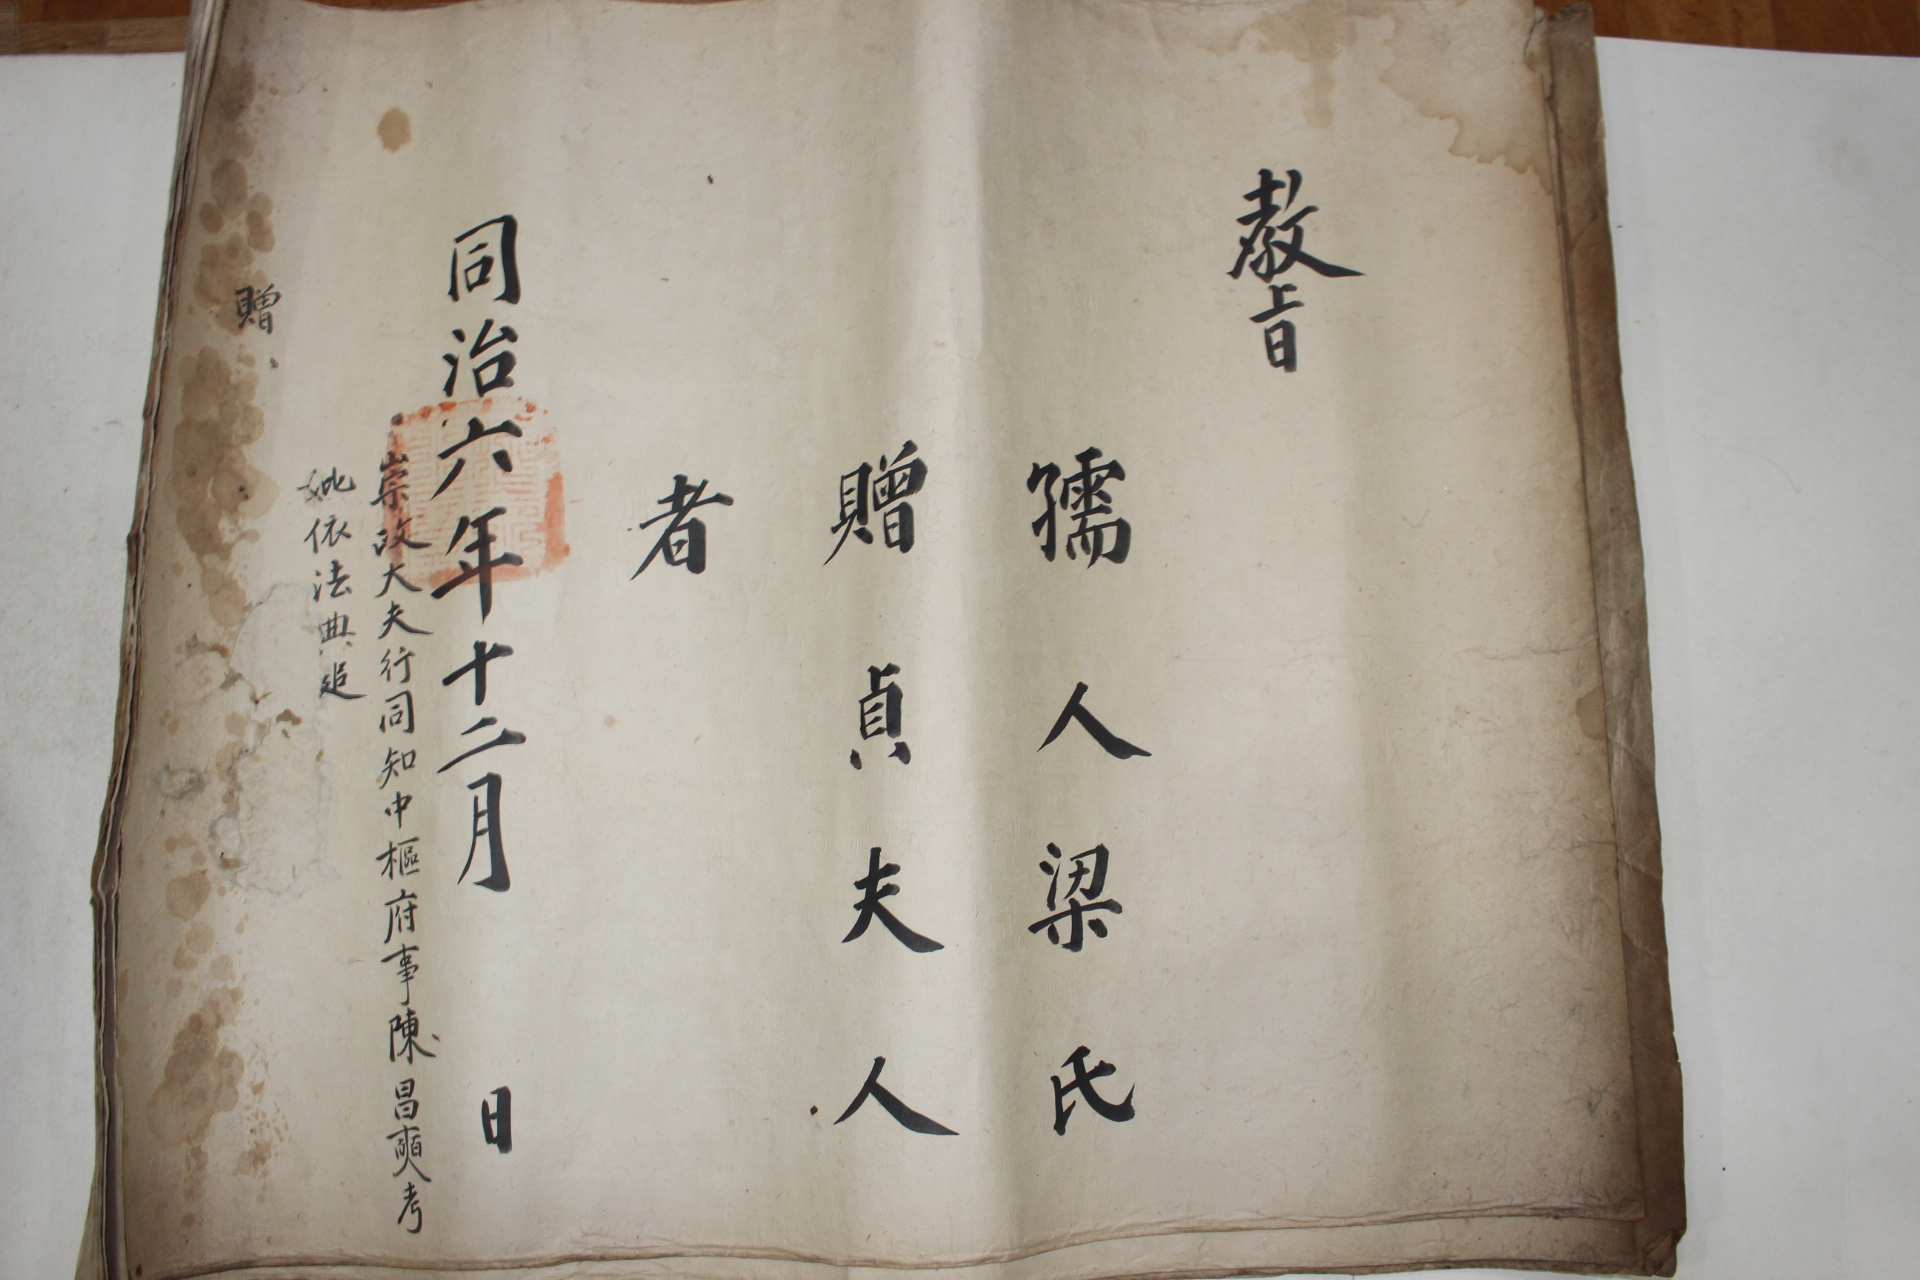 敎旨
孺人梁氏
贈貞夫人
者
同治六年十二月 日
崇政大夫行同知中樞府事陳昌奭考
妣依法典追
贈